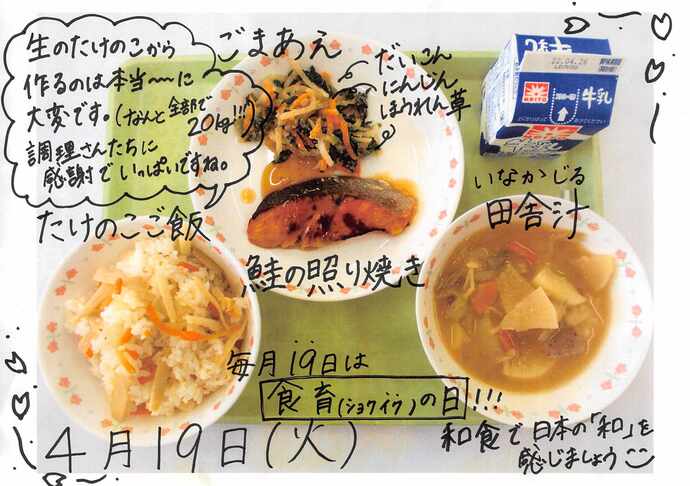 生のたけのこから
作るのは本当〜〜に
大変です。(なんと全部で
20kg!!!)
調理さんたちに
感謝でいっぱいですね。
ごまあえ
だいこん
にんじん
ほうれん草
22.04.26
牛乳
いなかじる
田舎汁
たけのこご飯
鮭の照り焼き
毎月19日は
食育(ショクイク)の日!!!
4月19日(火)
和食で日本の「和」を
感じましょう